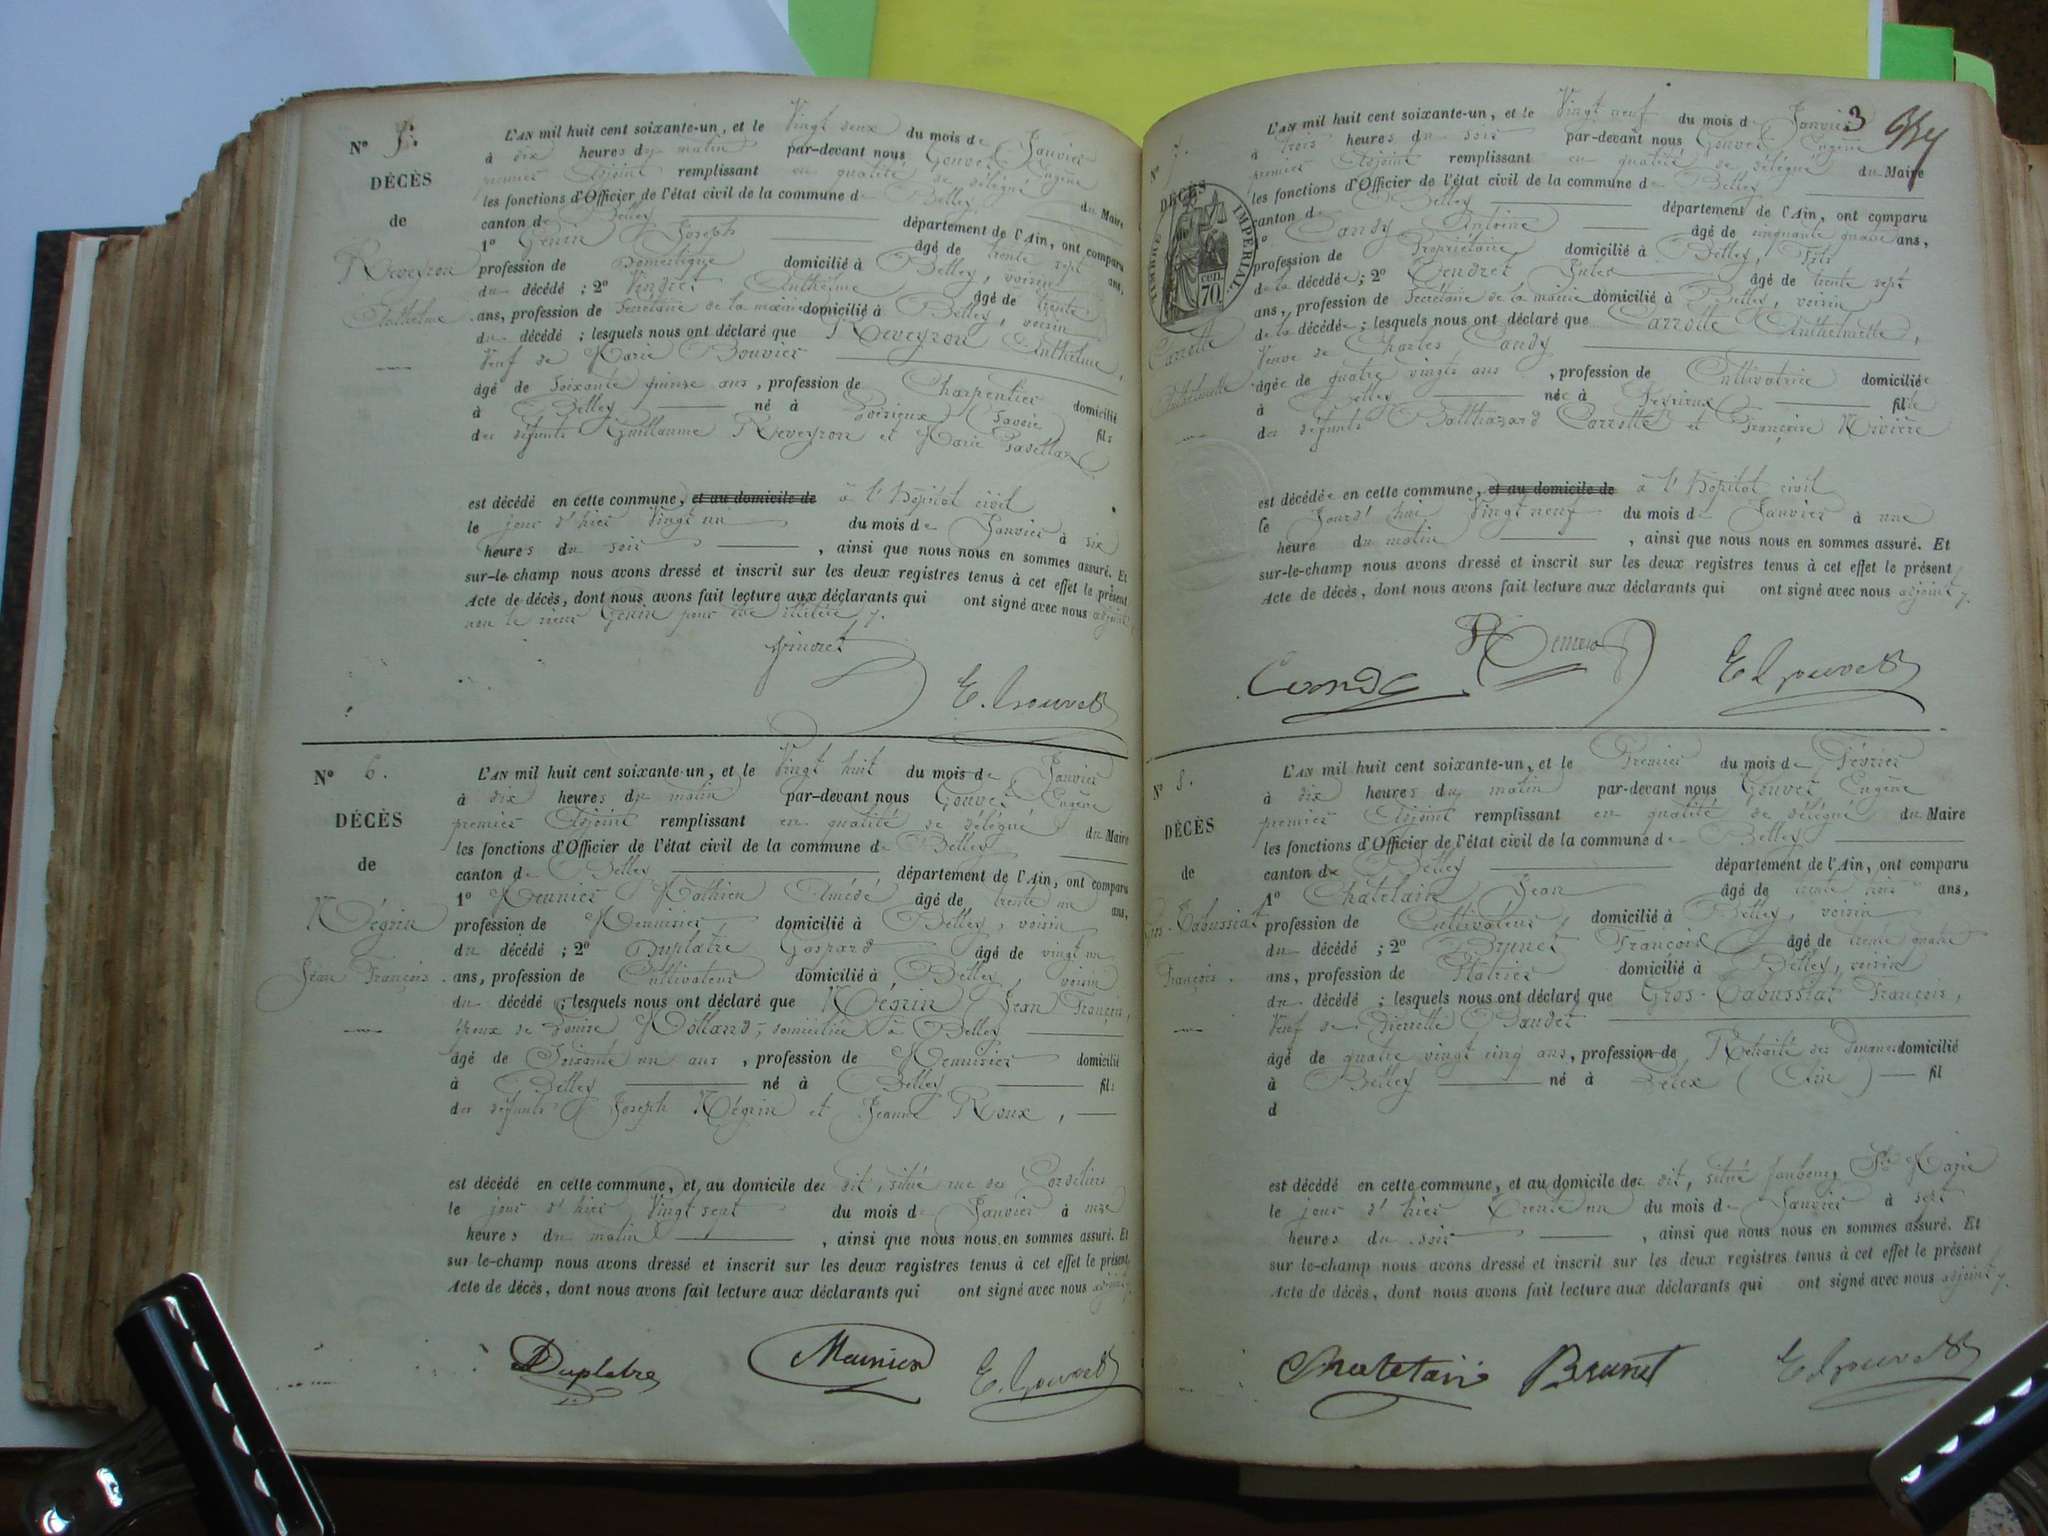 N° 5.
DÉCÈS
de
Reveyron
Anthelme
L'AN mil huit cent soixante-un, et le Vingt deux du mois de Janvier
à dix heures du matin par-devant nous Gouvet Eugène
premier Adjoint remplissant en qualité de délégué du Maire
les fonctions d'Officier de l'état civil de la commune de Belley
canton de Belley département de l'Ain, ont comparu
1° Genin Joseph âgé de trente sept ans,
profession de Domestique domicilié à Belley, voisin
du décédé ; 2° Vendret Anthelme âgé de trente
ans, profession de Secrétaire de la mairie domicilié à Belley, voisin
du décédé ; lesquels nous ont déclaré que Reveyron Anthelme,
Veuf de Marie Bouvier
âgé de soixante quinze ans, profession de Charpentier domicilié
à Belley né à (Savoie) fils
des défunts Guillaume Reveyron et Marie
est décédé en cette commune, et au domicile de à l'hôpital civil
le jour d'hier Vingt un du mois de Janvier à six
heures du soir , ainsi que nous nous en sommes assuré. Et
sur-le-champ nous avons dressé et inscrit sur les deux registres tenus à cet effet le présent
Acte de décès, dont nous avons fait lecture aux déclarants qui ont signé avec nous adjoint,
non le sieur Genin pour être illitéré
E. Gouvet
N° 6.
DÉCÈS
de
Négrin
Jean François
L'AN mil huit cent soixante-un, et le Vingt huit du mois de Janvier
à dix heures du matin par-devant nous Gouvet Eugène
premier Adjoint remplissant en qualité de délégué du Maire
les fonctions d'Officier de l'état civil de la commune de Belley
canton de Belley département de l'Ain, ont comparu
1° Meunier Mathieu Amédé âgé de trente un ans,
profession de Menuisier domicilié à Belley, voisin
du décédé ; 2° Duplatre Gaspard âgé de vingt un
ans, profession de Cultivateur domicilié à Belley, voisin
du décédé ; lesquels nous ont déclaré que Négrin Jean François,
époux de Louise Molland, domiciliée à Belley
âgé de Soixante un ans, profession de Menuisier domicilié
à Belley né à Belley fils
des défunts Joseph Négrin et Jeanne Roux,
est décédé en cette commune, et au domicile de dit, situé rue des Cordeliers
le jour d'hier Vingt sept du mois de Janvier à onze
heures du matin , ainsi que nous nous en sommes assuré. Et
sur-le-champ nous avons dressé et inscrit sur les deux registres tenus à cet effet le présent
Acte de décès, dont nous avons fait lecture aux déclarants qui ont signé avec nous adjoint
Duplatre Meunier E. Gouvet
3
N° 7.
DÉCÈS
TIMBRE IMPERIAL
70 cen.
Carrotte
Anthelmette
L'AN mil huit cent soixante-un, et le Vingt neuf du mois de Janvier
à trois heures du soir par-devant nous Gouvet Eugène
premier Adjoint remplissant en qualité de délégué du Maire
les fonctions d'Officier de l'état civil de la commune de Belley
canton de Belley département de l'Ain, ont comparu
1° Candy Antoine âgé de cinquante quatre ans,
profession de Propriétaire domicilié à Belley, Fils
de la décédée ; 2° Vendret Jules âgé de trente sept
ans, profession de Secrétaire de la mairie domicilié à Belley, voisin
de la décédée ; lesquels nous ont déclaré que Carrotte Anthelmette,
Veuve de Charles Candy
âgée de quatre vingts ans, profession de Cultivatrice domiciliée
à Belley née à fille
des défunts Balthazard Carrotte et Françoise Rivière
est décédée en cette commune, et au domicile de à l'hôpital civil
le Jourd'hui Vingt neuf du mois de Janvier à une
heure du matin , ainsi que nous nous en sommes assuré. Et
sur-le-champ nous avons dressé et inscrit sur les deux registres tenus à cet effet le présent
Acte de décès, dont nous avons fait lecture aux déclarants qui ont signé avec nous adjoint
E. Gouvet
N° 8.
DÉCÈS
de
Gros-Tabussiat
François
L'AN mil huit cent soixante-un, et le Premier du mois de Février
à dix heures du matin par-devant nous Gouvet Eugène
premier Adjoint remplissant en qualité de délégué du Maire
les fonctions d'Officier de l'état civil de la commune de Belley
canton de Belley département de l'Ain, ont comparu
1° Chatelain Jean âgé de trente trois ans,
profession de Cultivateur, domicilié à Belley, voisin
du décédé ; 2° Brunet François âgé de trente quatre
ans, profession de Plâtrier domicilié à Belley, voisin
du décédé ; lesquels nous ont déclaré que Gros-Tabussiat François,
Veuf de Pierrette Baudet
âgé de quatre vingt cinq ans, profession de Retraité des Douanes domicilié
à Belley né à Lélex (Ain) fil
d
est décédé en cette commune, et au domicile de dit, situé faubourg St Marie
le jour d'hier Trente un du mois de Janvier à sept
heures du soir , ainsi que nous nous en sommes assuré. Et
sur-le-champ nous avons dressé et inscrit sur les deux registres tenus à cet effet le présent
Acte de décès, dont nous avons fait lecture aux déclarants qui ont signé avec nous adjoint
Chatelain Brunet E. Gouvet